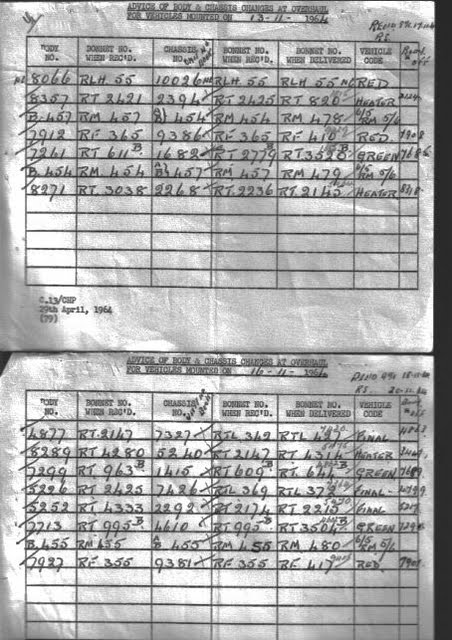 ADVICE OF BODY & CHASSIS CHANGES AT OVERHAUL
FOR VEHICLES MOUNTED ON 13-11- 1964
BODY NO. BONNET NO. WHEN REC'D. CHASSIS NO. BONNET NO. WHEN REC'D. BONNET NO. WHEN DELIVERED VEHICLE CODE
8066 RLH 55 10026 RLH 55 RLH 55 RED
8357 RT 2421 2394 RT 2425 RT 820 HEATER
B.457 RM 457 454 RM 454 RM 478 RM 5/6
7912 RF 365 9386 RF 365 RF 416 RED 7908
7261 RT 611 B 1682 RT 2779 RT 3520 GREEN
B.454 RM 454 457 RM 457 RM 479 RM 5/6
8271 RT 3038 2268 RT 2236 RT 2145 HEATER
C.13/CHP
29th April, 1964
(79)
ADVICE OF BODY & CHASSIS CHANGES AT OVERHAUL
FOR VEHICLES MOUNTED ON 16-11- 1964
BODY NO. BONNET NO. WHEN REC'D. CHASSIS NO. BONNET NO. WHEN REC'D. BONNET NO. WHEN DELIVERED VEHICLE CODE
4877 RT 2147 7327 RTL 342 RTL FINAL
8289 RT 4280 5240 RT 2147 RT 4314 HEATER
7299 RT 963 B 1415 RT 609 B RT GREEN
5226 RT 2425 7426 RTL 369 RTL 372 FINAL
5252 RT 4333 2292 RT 2174 RT 2215 FINAL
7713 RT 995 B 4610 RT 995 B RT 3504 GREEN
B.455 RM 455 B 455 RM 455 RM 480 RM 5/6
7927 RF 355 9381 RF 355 RF 417 RED